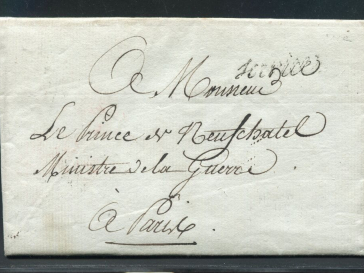 Service
A Monsieur
Le Prince de Neufchatel
Ministre de la Guerre
à Paris.